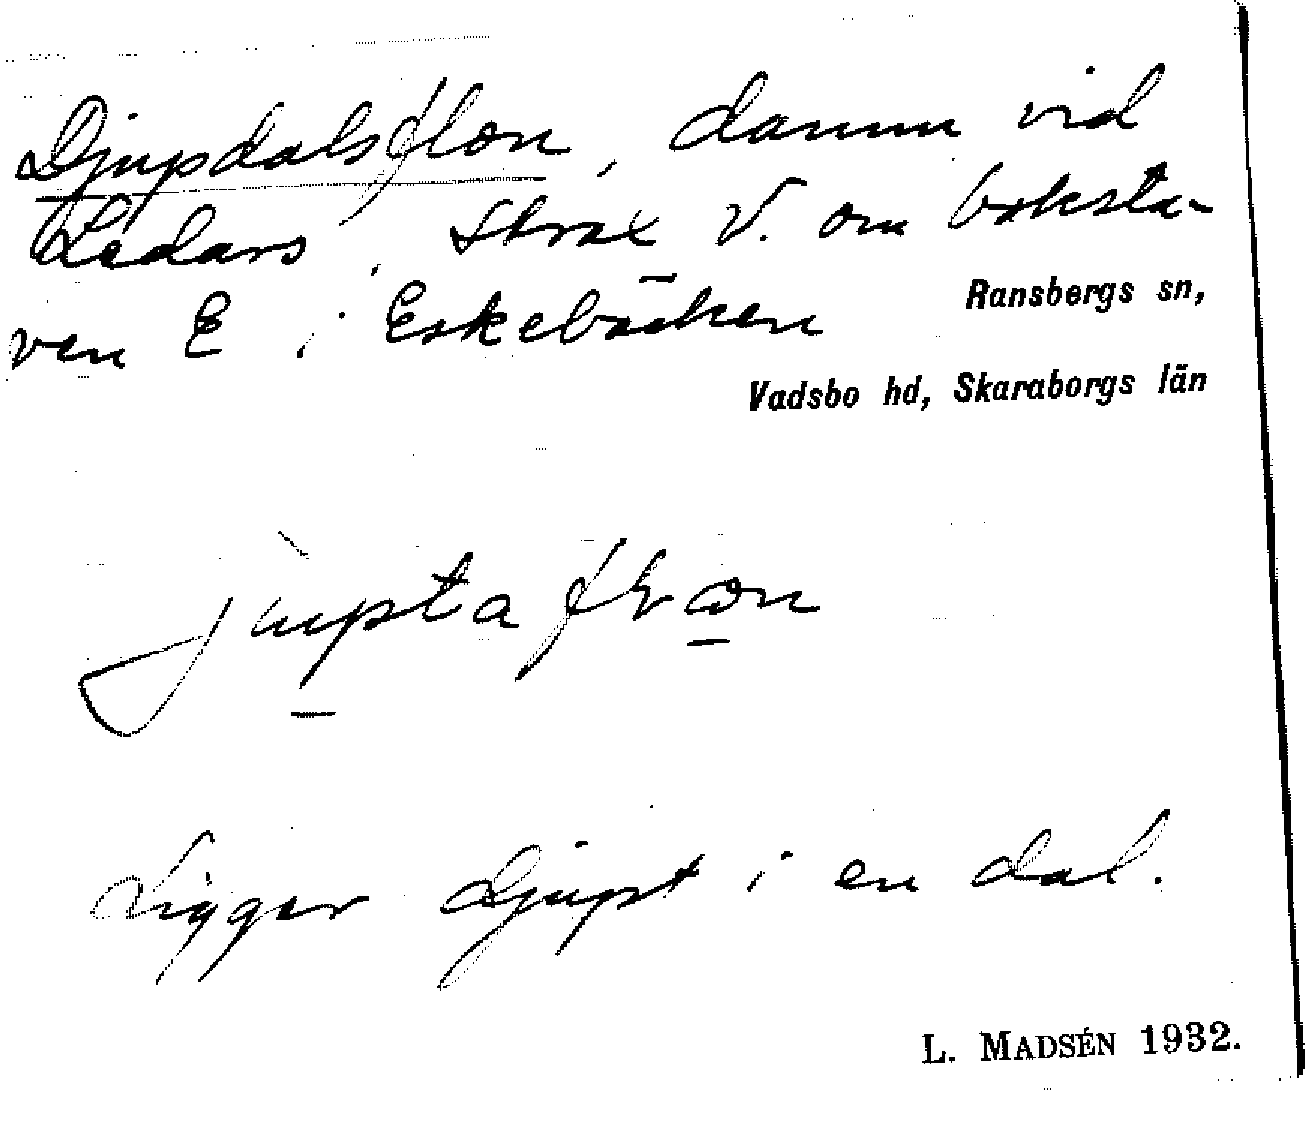 Djupdalsflon, damm vid
Ledars, strax V. om boksta-
ven E i Eskebäcken
Ransbergs sn,
Vadsbo hd, Skaraborgs län
Ligger djupt i en dal.
L. MADSÉN 1932.